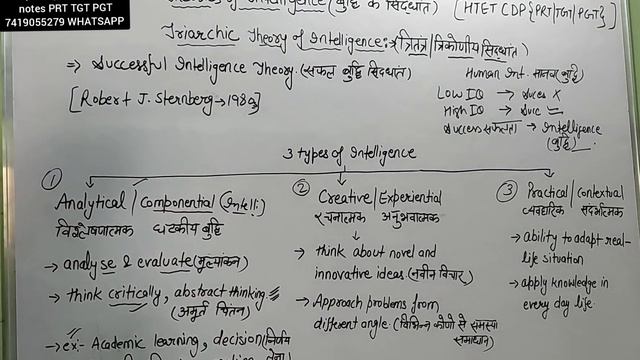 notes PRT TGT PGT
7419055279 WHATSAPP
of Intelligence (बुद्धि के सिद्धांत) [HTET CDP {PRT/TGT/PGT}]
Triarchic Theory of Intelligence: (त्रितंत्र/त्रिकोणीय सिद्धांत)
⇒ Successful Intelligence Theory. (सफल बुद्धि सिद्धांत)
[Robert J. Sternberg → 1985]
Human Int. मानव बुद्धि
Low IQ → Succes X
High IQ → Succ
Success सफलता → Intelligence
(बुद्धि)
3 types of Intelligence
① Analytical / Componential (Intelli.)
विश्लेषणात्मक घटकीय बुद्धि
→ analyse & evaluate (मूल्यांकन)
→ think critically, abstract thinking
(अमूर्त चिंतन)
→ ex:- Academic learning, decision/निर्णय
लेना
② Creative/Experiential
रचनात्मक अनुभवात्मक
→ think about novel and
innovative ideas. (नवीन विचार)
→ Approach problems from
different angle. (विभिन्न कोणों से समस्या
समाधान)
③ Practical / Contextual
व्यवहारिक संदर्भात्मक
→ ability to adapt real-
life situation
→ apply knowledge in
every day life.